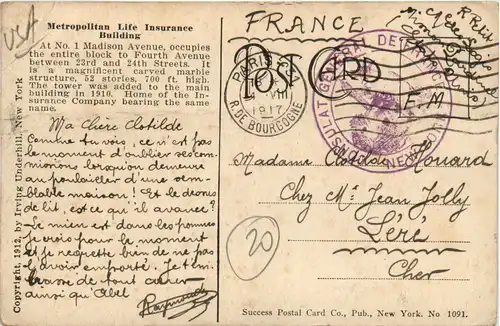 USA
Metropolitan Life Insurance
Building
At No. 1 Madison Avenue, occupies
the entire block to Fourth Avenue
between 23rd and 24th Streets. It
is a magnificent carved marble
structure, 52 stories, 700 ft. high.
The tower was added to the main
building in 1910. Home of the In-
surance Company bearing the same
name.
Copyright, 1912, by Irving Underhill, New York
Ma Chère Clotilde
Comme tu vois, ce n'est pas
le moment d'oublier ses com-
missions lorsqu'on demeure
au poulailler d'une sem-
blable maison! Et le dessus
de lit, est-ce qu'il avance?
Le mien est dans les pommes
je crois pour le moment
et je regrette bien de ne pas
l'avoir emporté. Je t'em-
brasse de tout cœur
ainsi qu'Abel
Raymonde
FRANCE
POST CARD
PARIS
VIII
1917
R. DE BOURGOGNE
CONSULAT GÉNÉRAL DE FRANCE
NEW YORK
F. M.
Madame Clotilde Houard
Chez Mr Jean Jolly
Léré
Cher
20
Success Postal Card Co., Pub., New York. No 1091.